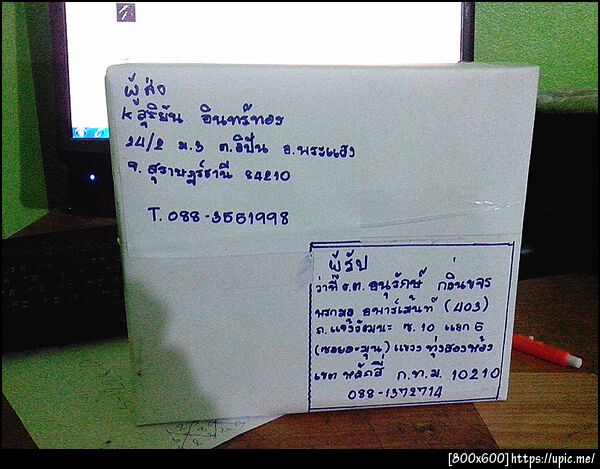 ผู้ส่ง
K สุริยัน อินทร์ทอง
24/2 ม.3 ต.อิปัน อ.พระแสง
จ. สุราษฎร์ธานี 84210
T. 088-3551998
ผู้รับ
ว่าที่ ร.ต. อนุรักษ์ กลิ่นขจร
พรกมล อพาร์เม้นท์ (403)
ถ.แจ้งวัฒนะ ซ.10 แยก 6
(ซอยอะมุน) แขวง ทุ่งสองห้อง
เขต หลักสี่ ก.ท.ม. 10210
088-1372714
[800x600]https://upic.me/